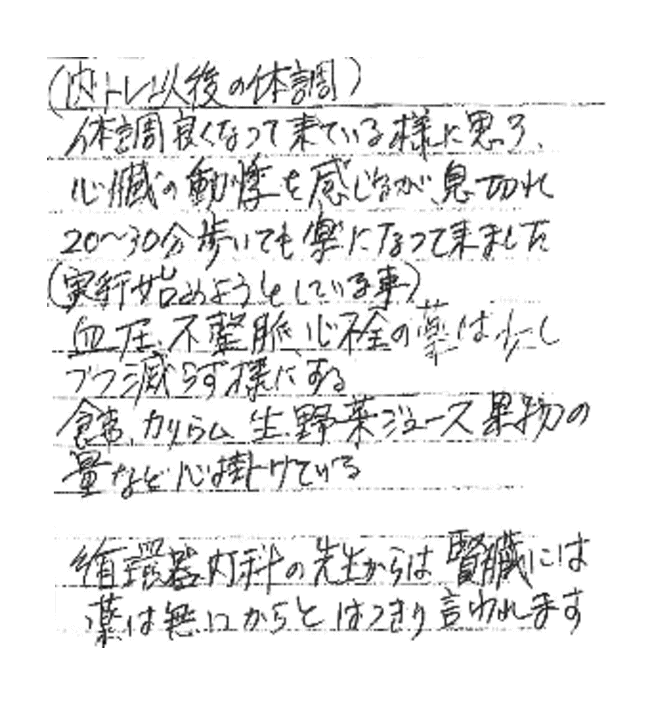 (内トレ以後の体調)
体調良くなって来ている様に思う、
心臓の動悸を感じるが、息切れ
20〜30分歩いても楽になって来ました
(実行始めようとしている事)
血圧、不整脈、心不全の薬は少し
ヅツ減らす様にする
食事、カリウム、生野菜ジュース果物の
量など心掛けている
循環器内科の先生からは腎臓には
薬は無いからとはっきり言われます